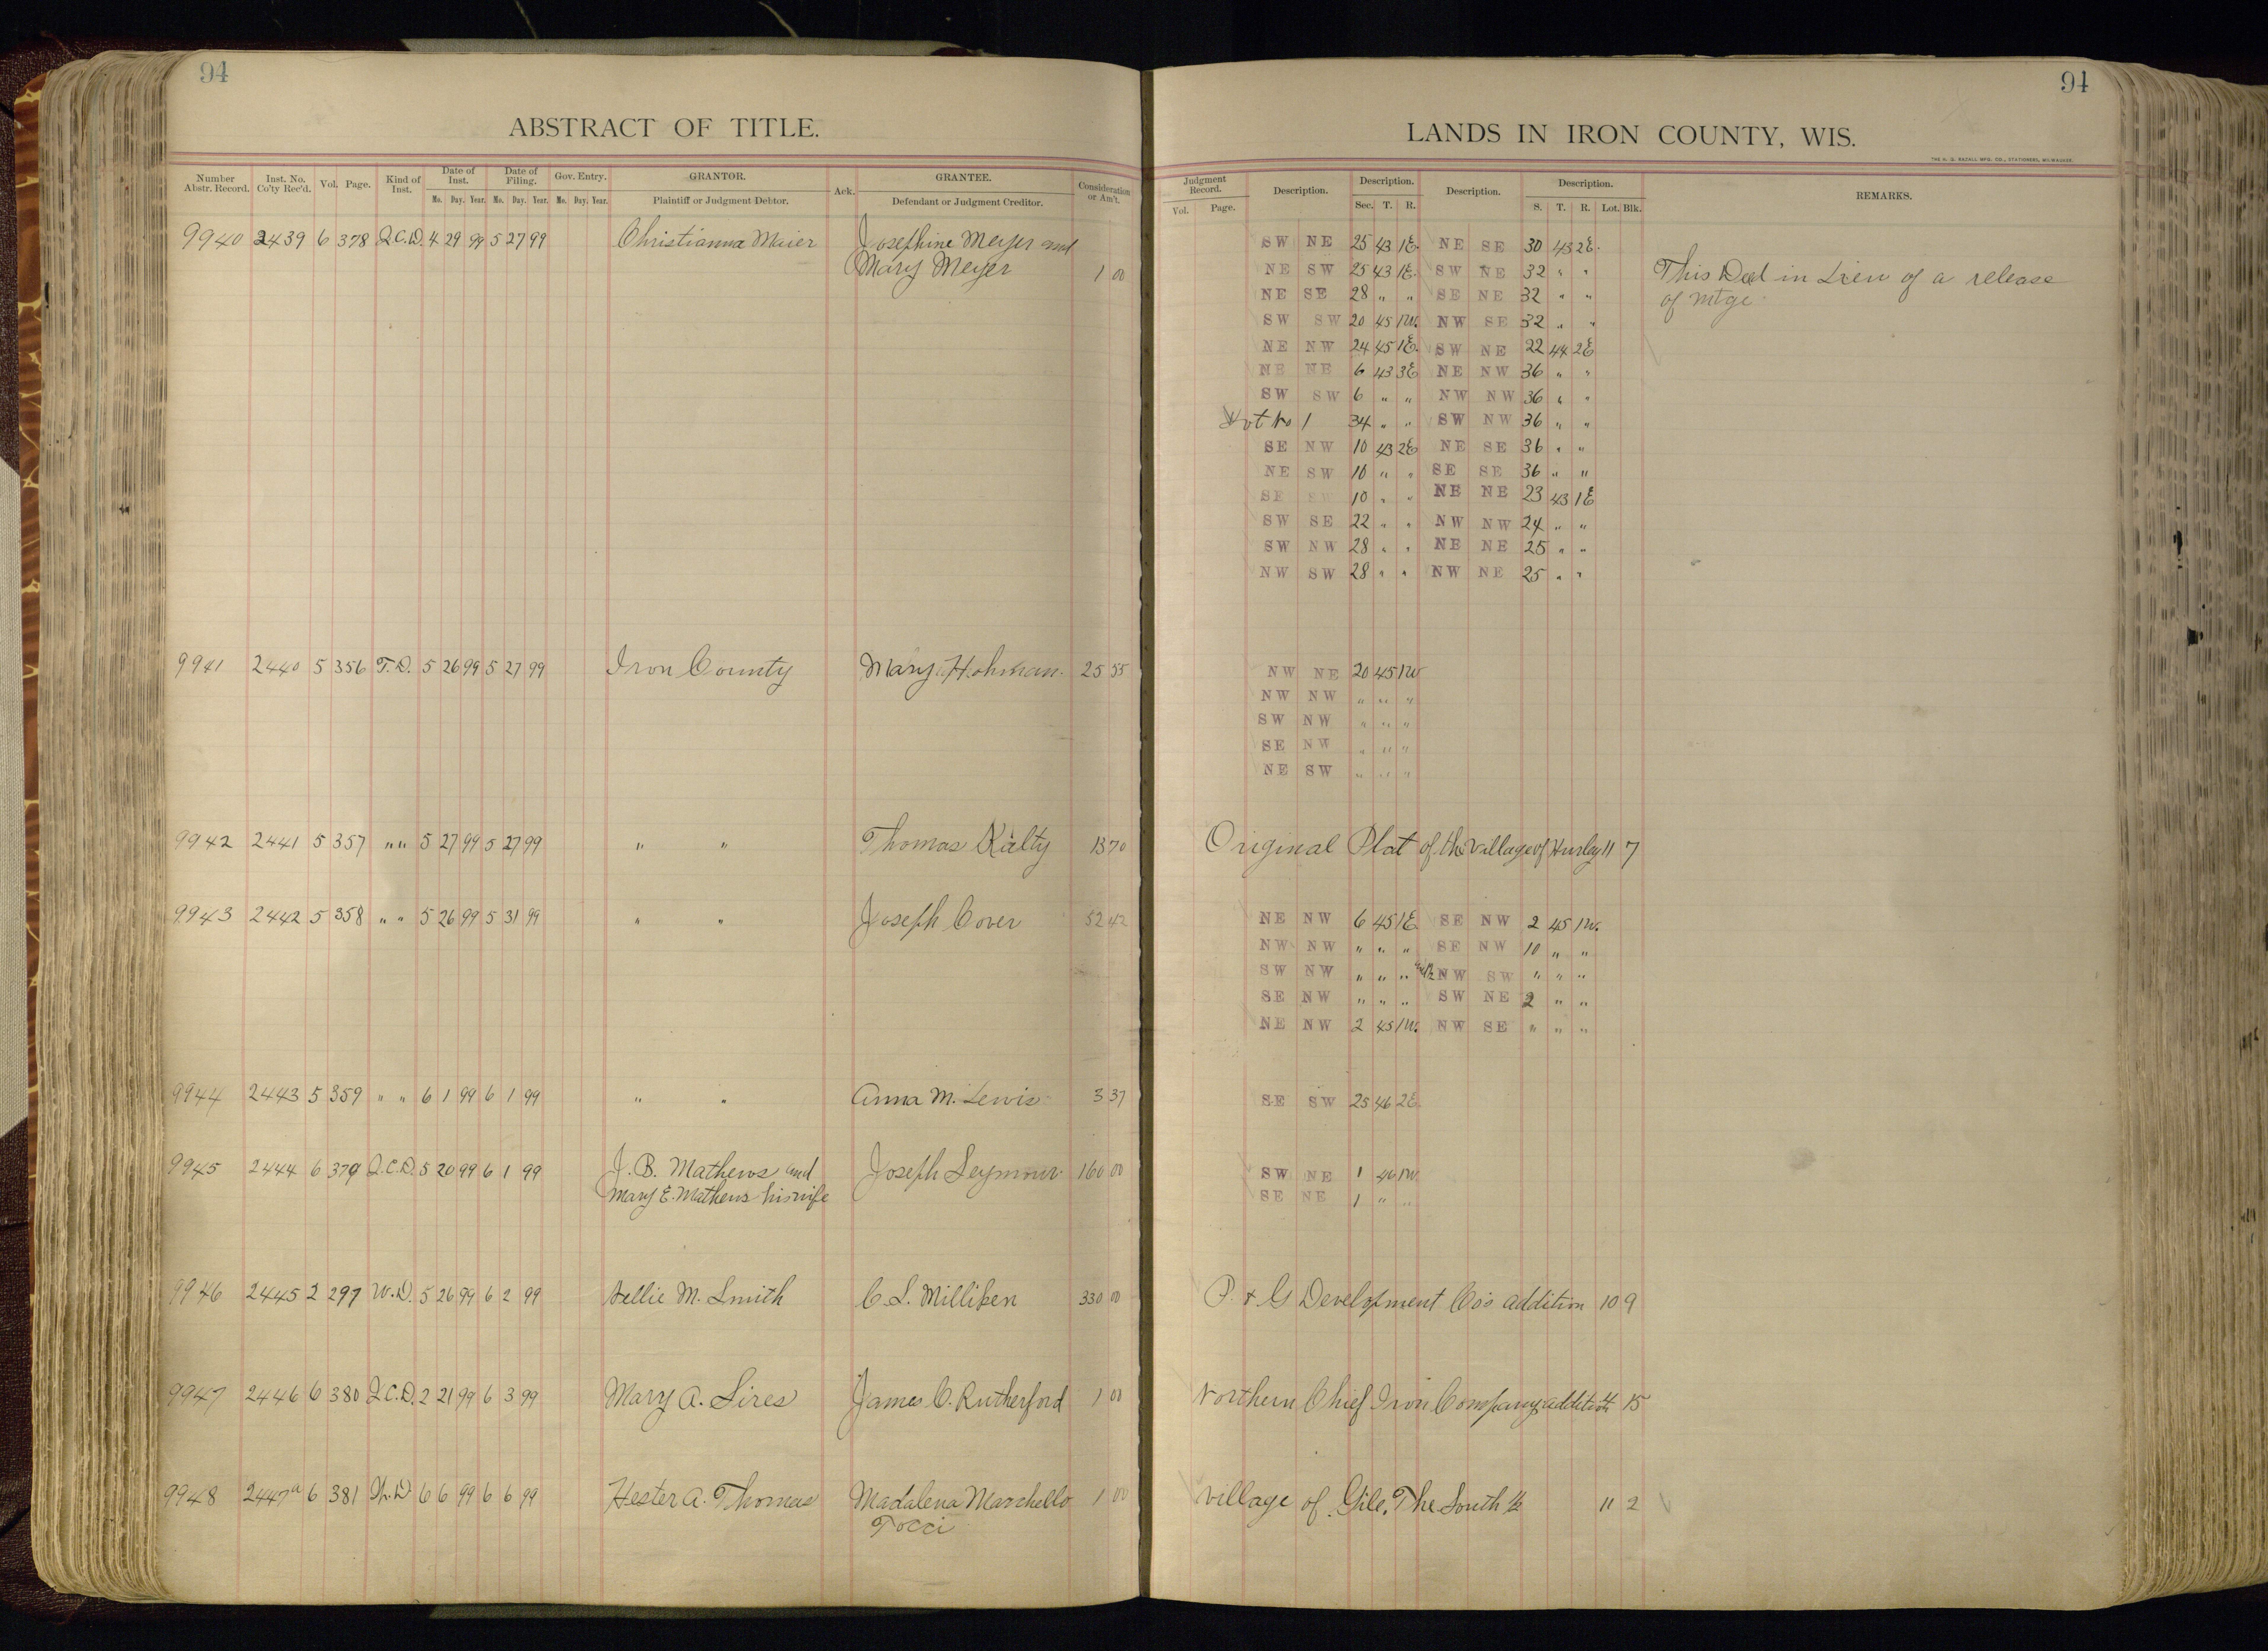 94
ABSTRACT OF TITLE.
Number Abstr. Record. Inst. No. Co'ty Rec'd. Vol. Page. Kind of Inst. Date of Inst. Mo. Day. Year. Date of Filing. Mo. Day. Year. Gov. Entry. Mo. Day. Year. GRANTOR. Plaintiff or Judgment Debtor. Ack. GRANTEE. Defendant or Judgment Creditor. Consideration or Am't.
9940 2439 6 378 Q.C.D. 4 29 99 5 27 99 Christianna Maier Josephine Meyer and
Mary Meyer 1 00
9941 2440 5 356 T.D. 5 26 99 5 27 99 Iron County Mary Hohman. 25 55
9942 2441 5 357 " " 5 27 99 5 27 99 " " Thomas Kalty 13 70
9943 2442 5 358 " " 5 26 99 5 31 99 " " Joseph Cover 52 42
9944 2443 5 359 " " 6 1 99 6 1 99 " " Anna M. Lewis 3 37
9945 2444 6 379 Q.C.D. 5 20 99 6 1 99 J. B. Mathews and Joseph Seymour 160 00
Mary E. Mathews his wife
9946 2445 2 297 W.D. 5 26 99 6 2 99 Nellie M. Smith C. L. Milliken 330 00
9947 2446 6 380 Q.C.D. 2 21 99 6 3 99 Mary A. Sires James C. Rutherford 1 00
9948 2447a 6 381 W.D 6 6 99 6 6 99 Hester A. Thomas Madalena Marchello 1 00
Tocci
94
LANDS IN IRON COUNTY, WIS.
THE H. G. RAZALL MFG. CO., STATIONERS, MILWAUKEE.
Judgment Record. Vol. Page. Description. Description. Sec. T. R. Description. Description. S. T. R. Lot. Blk. REMARKS.
SW NE 25 43 1E. NE SE 30 43 2E.
NE SW 25 43 1E. SW NE 32 " " This Deed in Lieu of a release
NE SE 28 " " SE NE 32 " " of mtge
SW SW 20 45 1W. NW SE 32 " "
NE NW 24 45 1E. SW NE 22 44 2E
NE NE 6 43 3E NE NW 36 " "
SW SW 6 " " NW NW 36 " "
Lot No 1 34 " " SW NW 36 " "
SE NW 10 43 2E NE SE 36 " "
NE SW 10 " " SE SE 36 " "
SE SW 10 " " NE NE 23 43 1E
SW SE 22 " " NW NW 24 " "
SW NW 28 " " NE NE 25 " "
NW SW 28 " " NW NE 25 " "
NW NE 20 45 1W
NW NW " " "
SW NW " " "
SE NW " " "
NE SW " " "
Original Plat of the Village of Hurley 11 7
NE NW 6 45 1E SE NW 2 45 1W.
NW NW " " " SE NW 10 " "
SW NW " " " NW SW " " "
SE NW " " " SW NE 2 " "
NE NW 2 45 1W. NW SE " " "
SE SW 25 46 2E.
SW NE 1 46 1W.
SE NE 1 " "
P. & G Development Co's addition 10 9
Northern Chief Iron Companys addition 15
Village of Gile, The South ½ 11 2